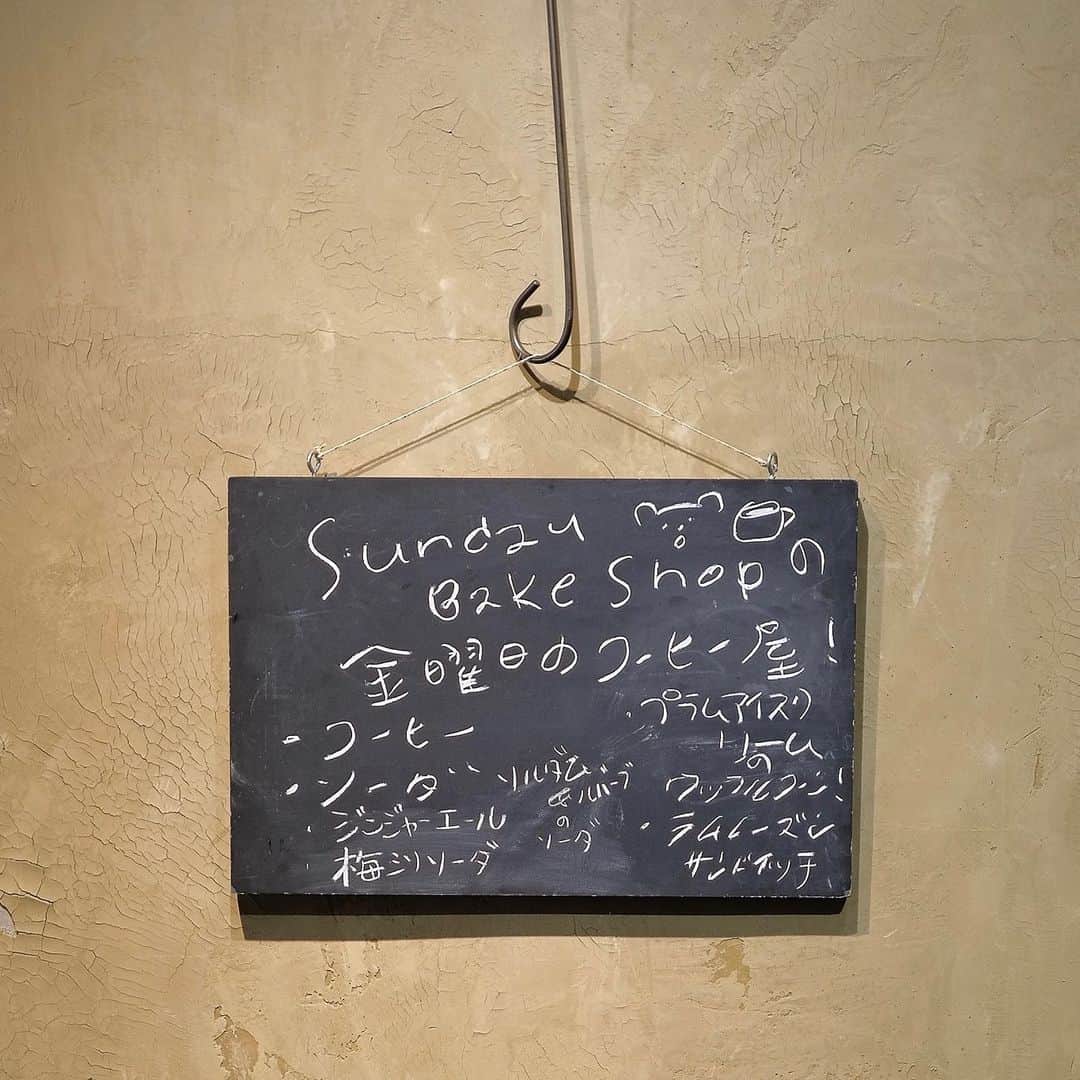 Sunday
Bake Shopの
金曜日のコーヒー屋!
・コーヒー
・ソーダ
・ジンジャーエール
・梅ミソソーダ
ルバーブ
の
ソーダ
・プラムアイスク
リーム
の
ワッフルコーン!
・ラムレーズン
サンドイッチ